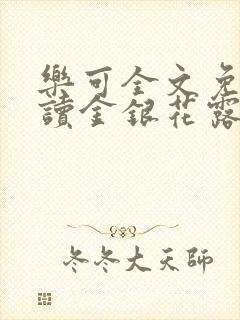 樂可全文免
讀金銀花露
冬冬大天師